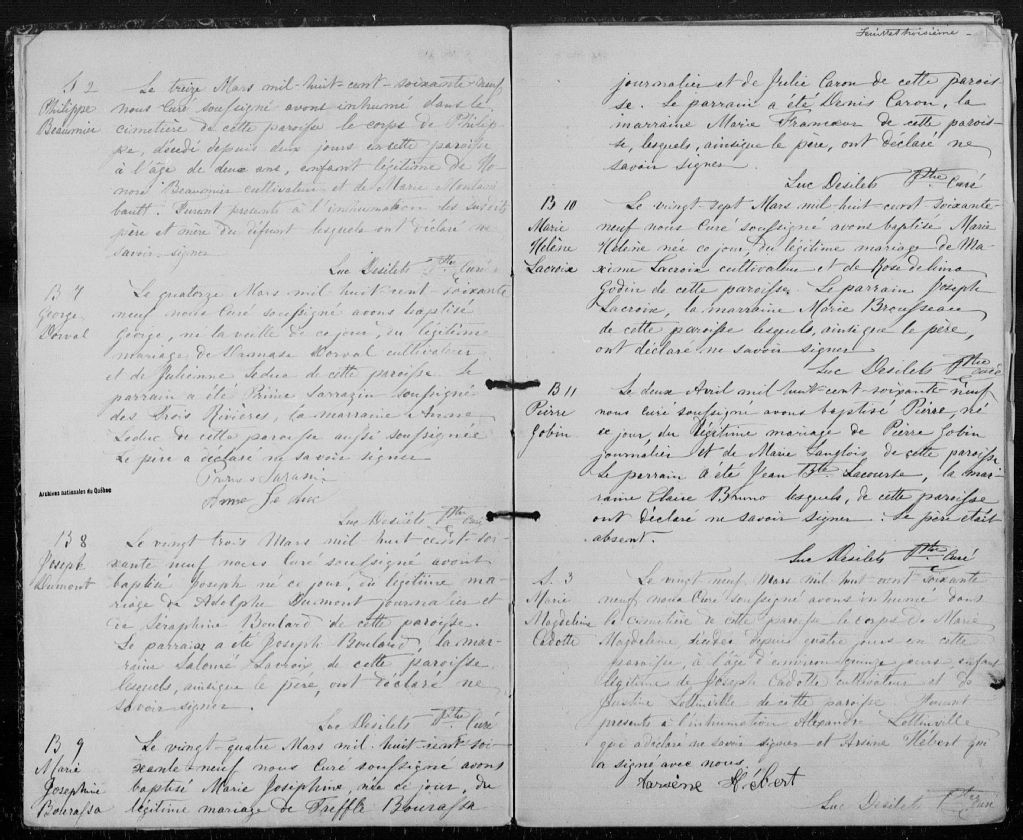 S 2
Philippe
Beaumier
Le treize Mars mil-huit-cent-soixante-neuf
nous Curé soussigné avons inhumé dans le
cimetière de cette paroisse le corps de Philip-
pe, décédé depuis deux jours en cette paroisse
à l'âge de deux ans, enfant légitime de Ho-
noré Beaumier cultivateur et de Marie Montam-
bault. Furent présents à l'inhumation les susdits
père et mère du défunt lesquels ont déclaré ne
savoir signer
Luc Desilets Ptre Curé
B 7
George
Dorval
Le quatorze Mars mil huit-cent soixante
neuf nous Curé soussigné avons baptisé
George, né la veille de ce jour, du légitime
mariage de Dorval cultivateur
et de Julienne Leduc de cette paroisse. Le
parrain a été Prime Sarrazin soussigné
des Trois Rivières, la marraine Anne
Leduc de cette paroisse aussi soussignée
Le père a déclaré ne savoir signer
Sarasin
Anne Le duc
Luc Desilets Ptre Curé
Archives nationales du Québec
B 8
Joseph
Dumont
Le vingt trois Mars mil huit cent-soi-
xante neuf nous Curé soussigné avons
baptisé Joseph né ce jour, du légitime ma-
riage de Adolphe Dumont journalier et
de Séraphine Bouland de cette paroisse.
Le parrain a été Joseph Bouland, la mar-
raine Salomé Lacroix de cette paroisse
lesquels, ainsi que le père, ont déclaré ne
savoir signer
Luc Desilets Ptre Curé
B 9
Marie
Josephine
Bourassa
Le vingt-quatre Mars mil huit-cent soi-
xante-neuf nous Curé soussigné avons
baptisé Marie Josephine, née ce jour, du
légitime mariage de Treffle Bourassa
Feuillet troisième
journalier et de Julie Caron de cette parois-
se. Le parrain a été Denis Caron, la
marraine Marie Francoeur de cette parois-
se, lesquels, ainsi que le père, ont déclaré ne
savoir signer
Luc Desilets Ptre Curé
B 10
Marie
Helène
Lacroix
Le vingt sept Mars mil huit-cent-soixante-
neuf nous Curé soussigné avons baptisé Marie
Helène née ce jour, du légitime mariage de Ma-
xime Lacroix cultivateur et de Rose de lima
Godin de cette paroisse. Le parrain Joseph
Lacroix, la marraine Marie Brousseau
de cette paroisse lesquels, ainsi que le père,
ont déclaré ne savoir signer
Luc Desilets Ptre Curé
B 11
Pierre
Gobin
Le deux Avril mil huit-cent soixante-neuf
nous Curé soussigné avons baptisé Pierre, né
ce jour, du légitime mariage de Pierre Gobin
journalier et de Marie Langlois de cette paroisse
Le parrain a été Jean Bte Lacourse, la mar-
raine Claire Bruno lesquels, de cette paroisse
ont déclaré ne savoir signer. Le père était
absent.
Luc Desilets Ptre Curé
S. 3
Marie
Magdeleine
Cadotte
Le vingt neuf Mars mil huit cent soixante
neuf nous Curé soussigné avons inhumé dans
le cimetière de cette paroisse le corps de Marie
Magdeleine, décédée depuis quatre jours en cette
paroisse, à l'âge d'environ quinze jours, enfant
légitime de Joseph Cadotte cultivateur et de
Justine Lottinville de cette paroisse. Furent
présents à l'inhumation Alexandre Lottinville
qui a déclaré ne savoir signer et Arsène Hébert qui
a signé avec nous.
Harsène Hébert
Luc Desilets Ptre Curé